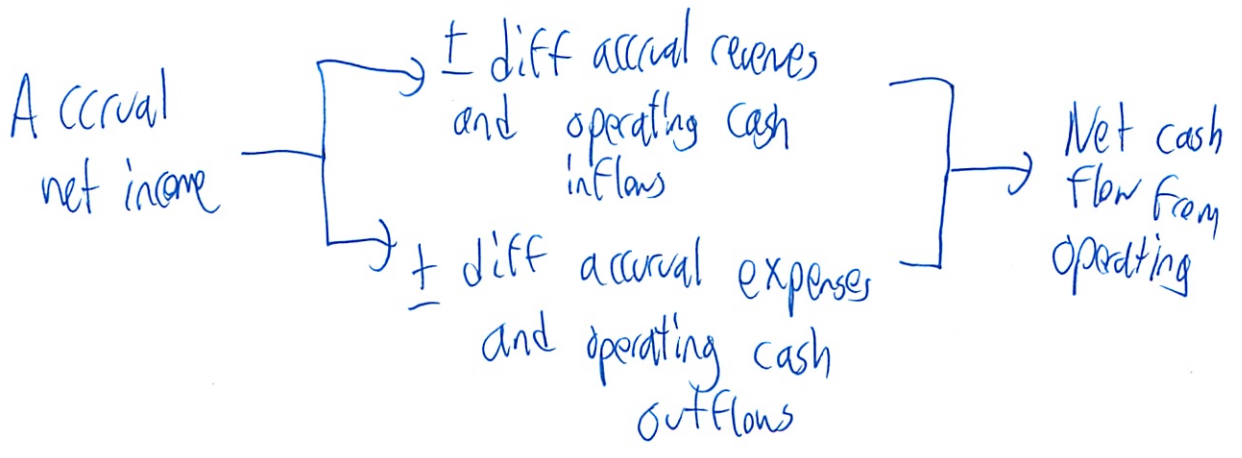 Accrual
net income
± diff accrual revenes
and operating cash
inflows
± diff accurval expenses
and operating cash
outflows
Net cash
flow from
operating